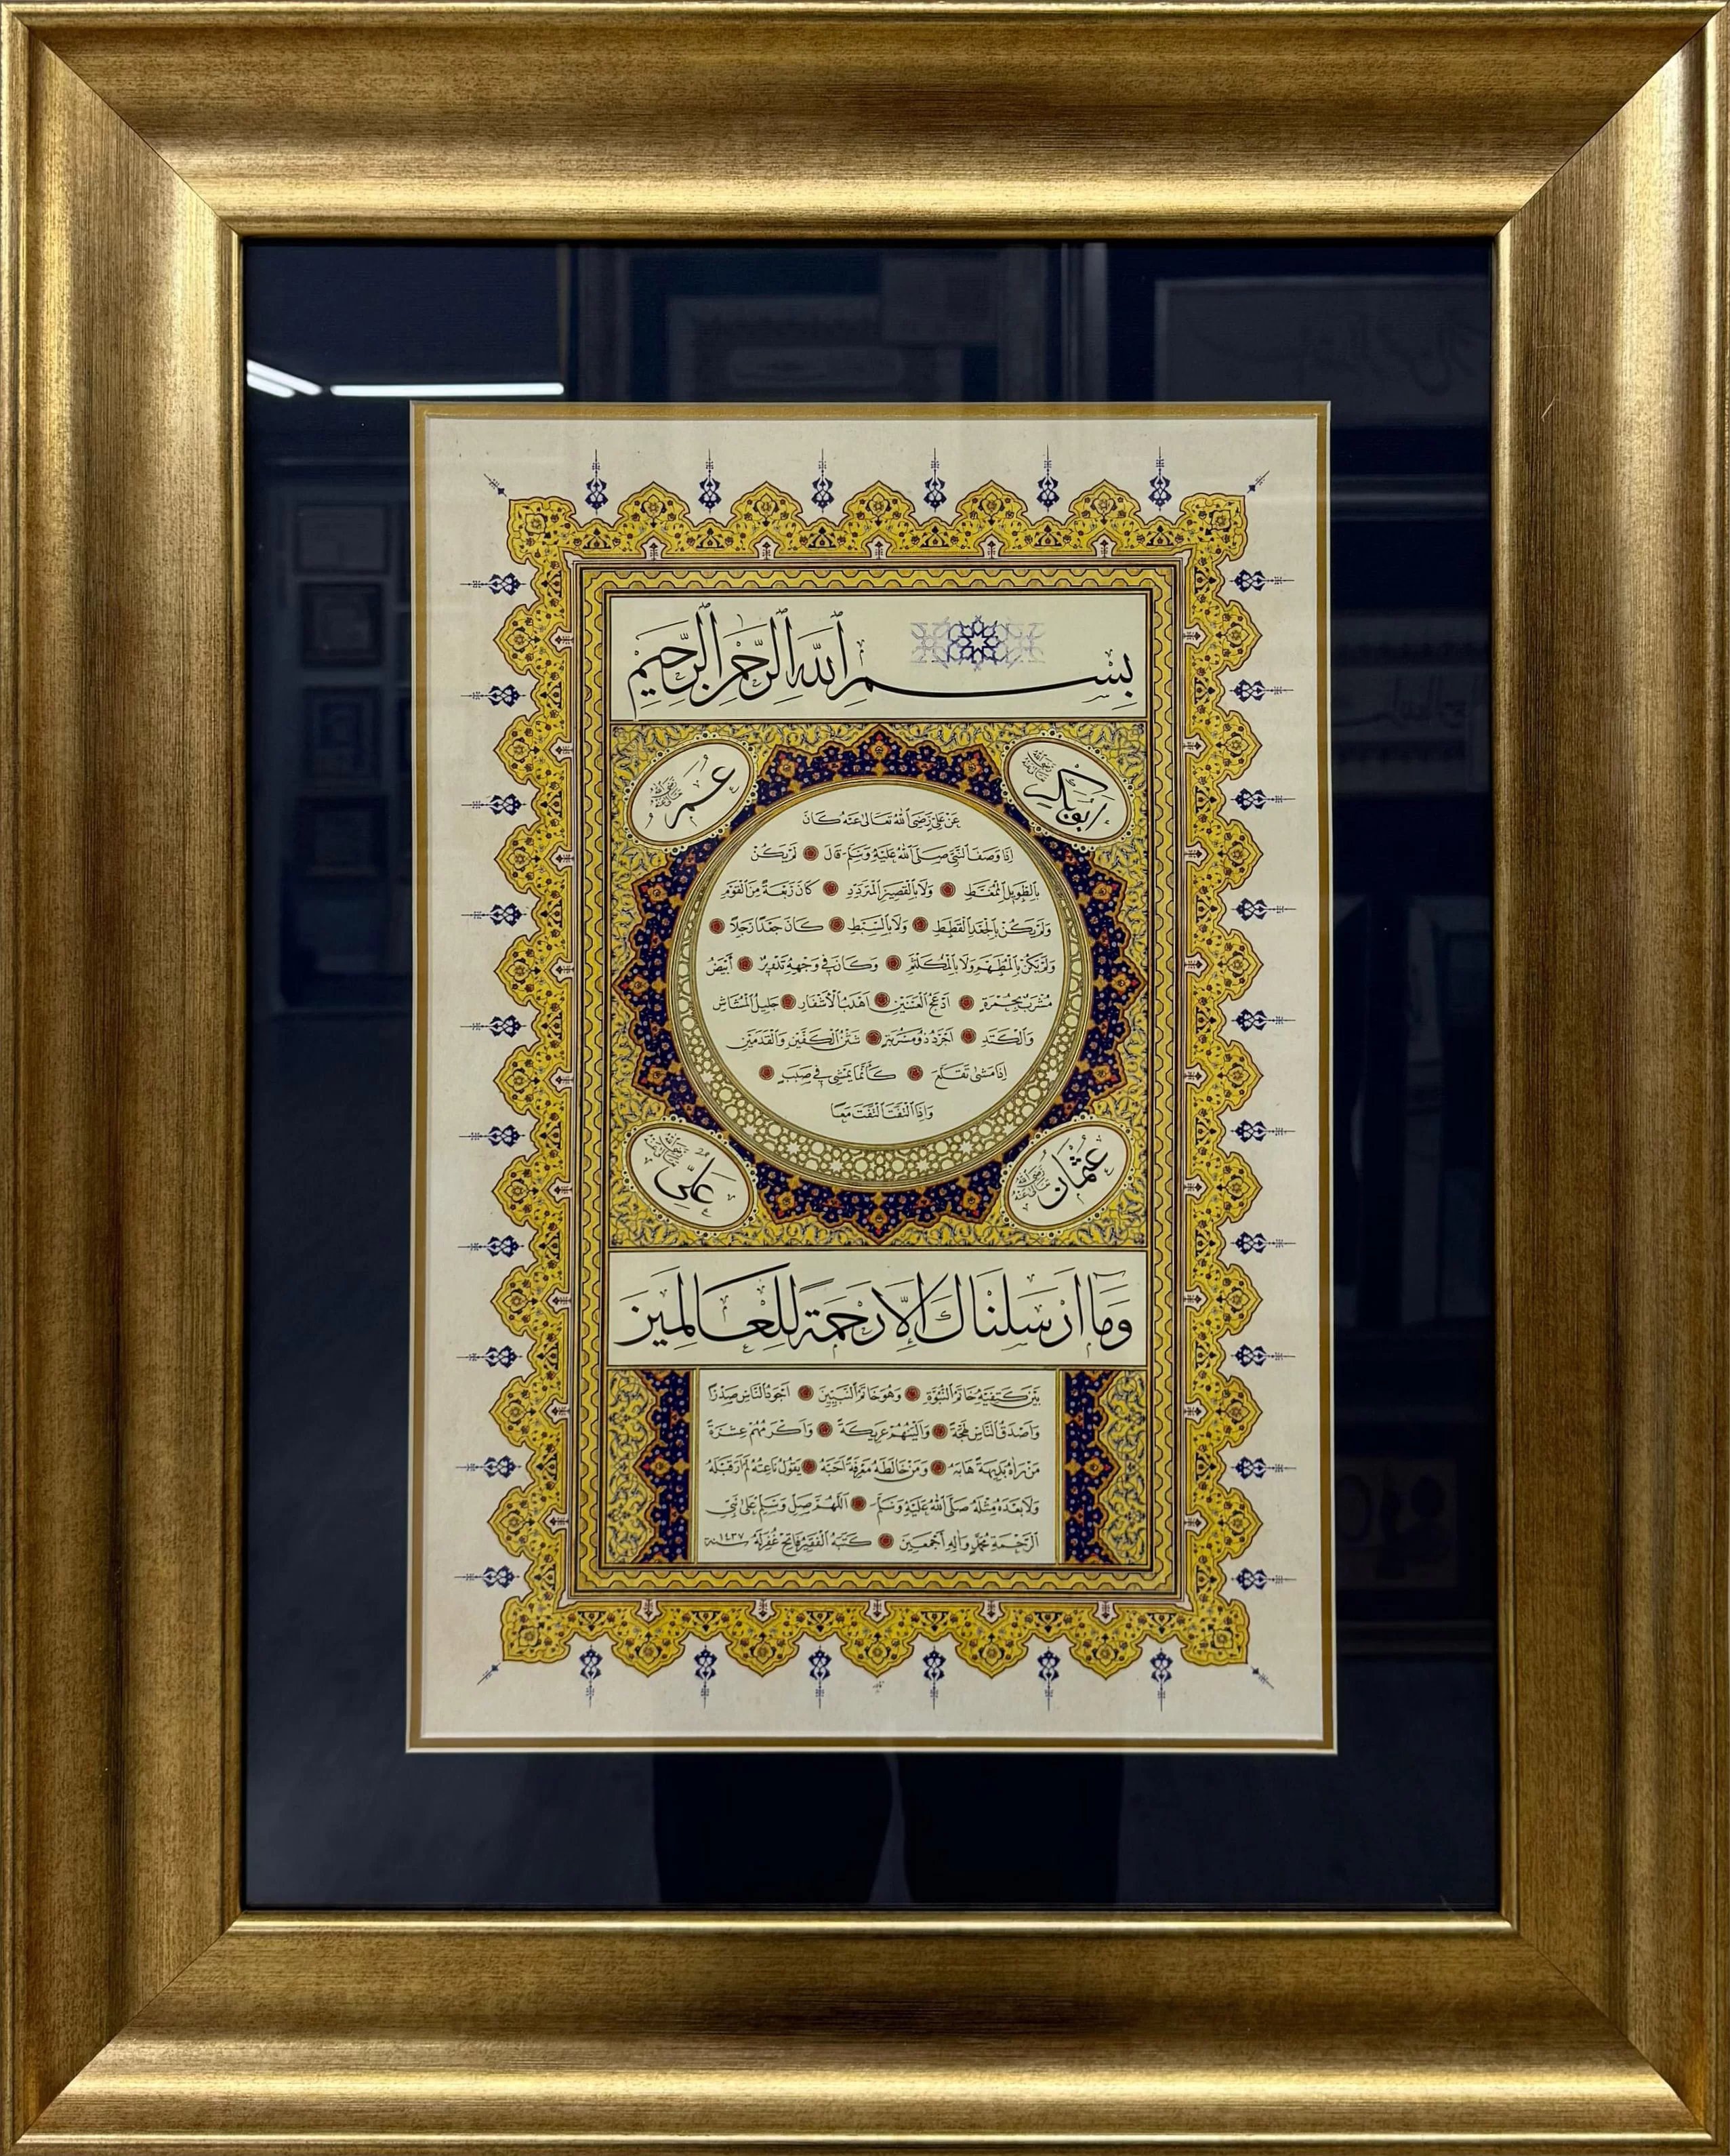 بِسْمِ ٱللّٰهِ ٱلرَّحْمٰنِ ٱلرَّحِيمِ
ابوبكر رضي الله تعالى عنه
عمر رضي الله تعالى عنه
عَنْ عَلِيٍّ رَضِيَ ٱللّٰهُ تَعَالٰى عَنْهُ كَانَ
اِذَا وَصَفَ النَّبِيَّ صَلَّى ٱللّٰهُ عَلَيْهِ وَسَلَّمَ قَالَ لَمْ يَكُنْ
بِالطَّوِيلِ الْمُمَّغِطِ وَلَا بِالْقَصِيرِ الْمُتَرَدِّدِ كَانَ رَبْعَةً مِنَ الْقَوْمِ
وَلَمْ يَكُنْ بِالْجَعْدِ الْقَطَطِ وَلَا بِالسَّبْطِ كَانَ جَعْدًا رَجِلًا
وَلَمْ يَكُنْ بِالْمُطَهَّمِ وَلَا بِالْمُكَلْثَمِ وَكَانَ فِي وَجْهِهِ تَدْوِيرٌ اَبْيَضُ
مُشْرَبٌ بِحُمْرَةٍ اَدْعَجُ الْعَيْنَيْنِ اَهْدَبُ الْاَشْفَارِ جَلِيلُ الْمُشَاشِ
وَالْكَتَدِ اَجْرَدُ ذُو مَسْرُبَةٍ شَثْنُ الْكَفَّيْنِ وَالْقَدَمَيْنِ
اِذَا مَشٰى تَقَلَّعَ كَاَنَّمَا يَمْشِي فِي صَبَبٍ
وَاِذَا الْتَفَتَ الْتَفَتَ مَعًا
عثمان رضي الله تعالى عنه
علي رضي الله تعالى عنه
وَمَا اَرْسَلْنَاكَ اِلَّا رَحْمَةً لِلْعَالَمِينَ
بَيْنَ كَتِفَيْهِ خَاتَمُ النُّبُوَّةِ وَهُوَ خَاتَمُ النَّبِيِّينَ اَجْوَدُ النَّاسِ صَدْرًا
وَاَصْدَقُ النَّاسِ لَهْجَةً وَاَلْيَنُهُمْ عَرِيكَةً وَاَكْرَمُهُمْ عِشْرَةً
مَنْ رَاٰهُ بَدِيهَةً هَابَهُ وَمَنْ خَالَطَهُ مَعْرِفَةً اَحَبَّهُ يَقُولُ نَاعِتُهُ لَمْ اَرَ قَبْلَهُ
وَلَا بَعْدَهُ مِثْلَهُ صَلَّى ٱللّٰهُ عَلَيْهِ وَسَلَّمَ اَللّٰهُمَّ صَلِّ وَسَلِّمْ عَلٰى نَبِيِّ
الرَّحْمَةِ مُحَمَّدٍ وَاٰلِهِ اَجْمَعِينَ كَتَبَهُ الْفَقِيرُ فَاتِح غُفِرَ لَهُ سنة ١٤٣٧